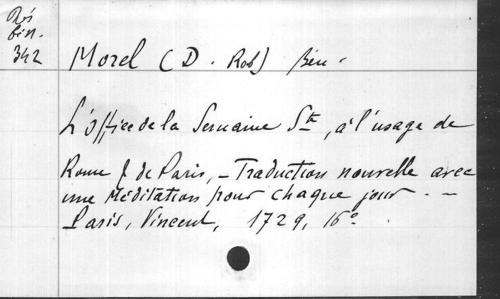 Rés
bén.
342
Morel (D. Rob) Bén.
L'Office de la Semaine Ste, à l'usage de
Rome & de Paris, - Traduction nouvelle avec
une Méditation pour chaque jour. -
Paris, Vincent, 1729, 16°